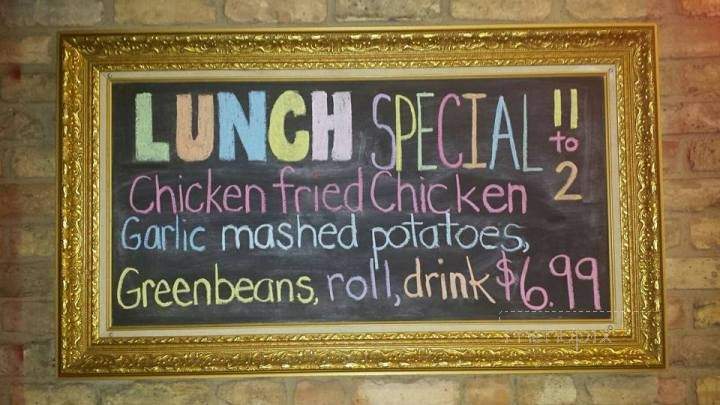 LUNCH SPECIAL 11 to 2
Chicken fried Chicken
Garlic mashed potatoes,
Greenbeans, roll, drink $6.99